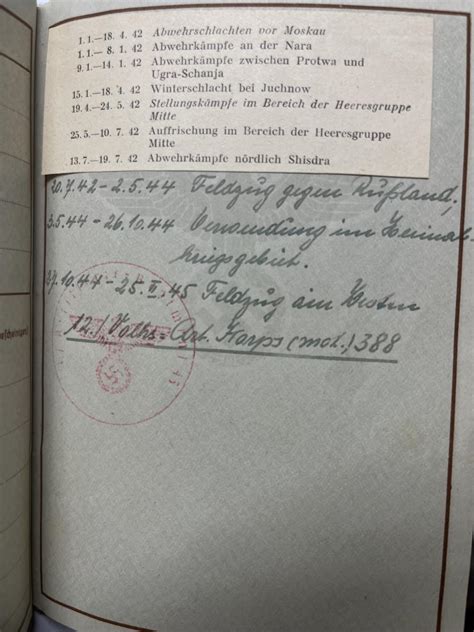 1. 1.—18. 4. 42 Abwehrschlachten vor Moskau
1. 1.— 8. 1. 42 Abwehrkämpfe an der Nara
9. 1.—14. 1. 42 Abwehrkämpfe zwischen Protwa und
Ugra-Schanja
15. 1.—18. 4. 42 Winterschlacht bei Juchnow
19. 4.—24. 5. 42 Stellungskämpfe im Bereich der Heeresgruppe
Mitte
25. 5.—10. 7. 42 Auffrischung im Bereich der Heeresgruppe
Mitte
13. 7.—19. 7. 42 Abwehrkämpfe nördlich Shisdra
20.7.42 - 2.5.44 Feldzug gegen Rußland,
3.5.44 - 26.10.44 Verwendung im Heimat-
kriegsgebiet.
27.10.44 - 25.II.45 Feldzug am Westen
12./Volks-Art. Korps (mot.) 388